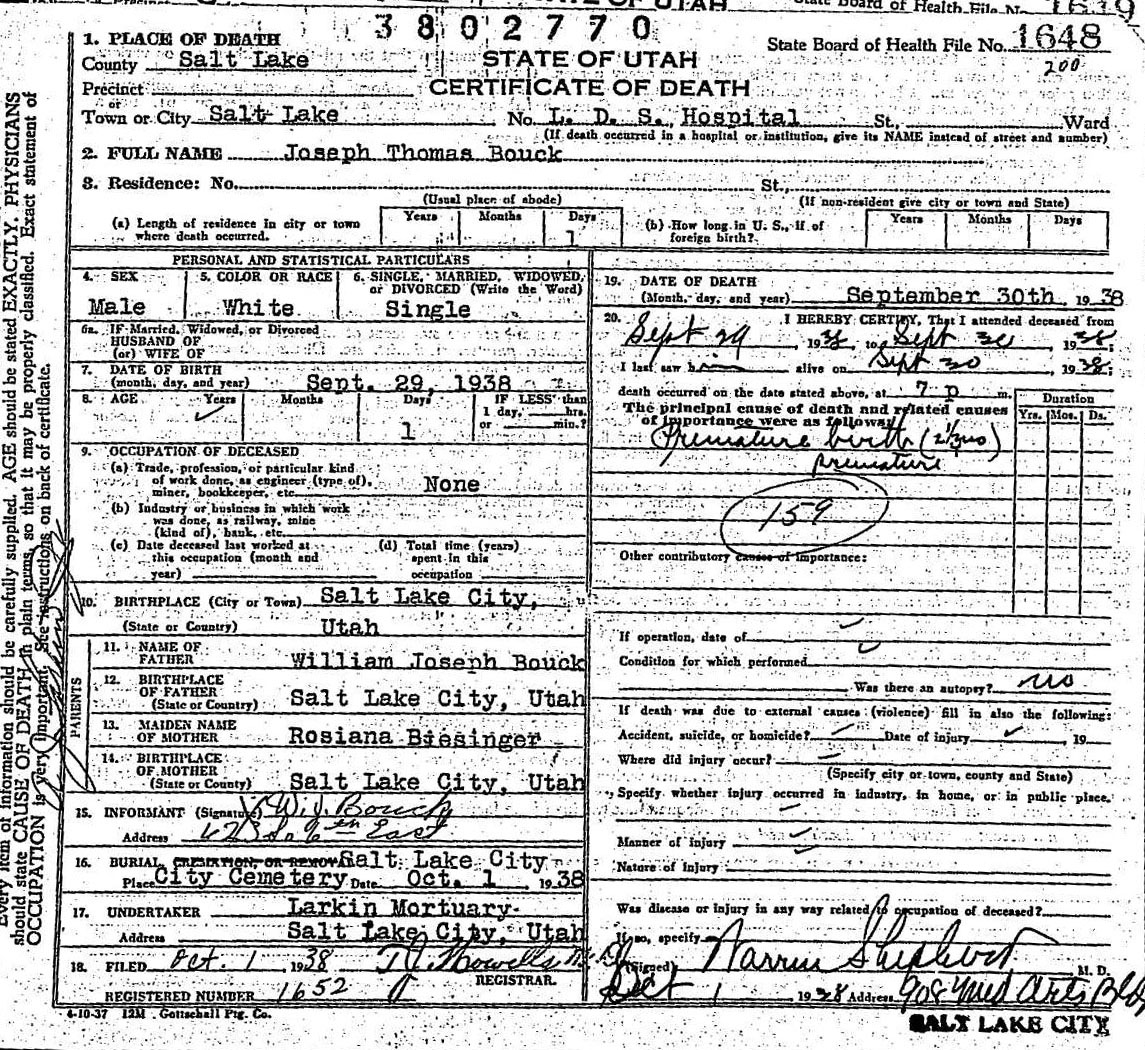 STATE OF UTAH
State Board of Health File No. 1639
3802770
1. PLACE OF DEATH
State Board of Health File No. 1648
200
County Salt Lake
STATE OF UTAH
Precinct
CERTIFICATE OF DEATH
or
Town or City Salt Lake No. L. D. S. Hospital St., Ward
(If death occurred in a hospital or institution, give its NAME instead of street and number)
2. FULL NAME Joseph Thomas Bouck
3. Residence: No. St.,
(Usual place of abode) (If non-resident give city or town and State)
(a) Length of residence in city or town where death occurred. Years Months Days 1
(b) How long in U. S., if of foreign birth? Years Months Days
PERSONAL AND STATISTICAL PARTICULARS
4. SEX 5. COLOR OR RACE 6. SINGLE, MARRIED, WIDOWED, or DIVORCED (Write the Word)
Male White Single
6a. IF Married, Widowed, or Divorced
HUSBAND OF
(or) WIFE OF
7. DATE OF BIRTH
(month, day, and year) Sept. 29, 1938
8. AGE Years Months Days IF LESS than
1 day, hrs.
1 or min.?
9. OCCUPATION OF DECEASED
(a) Trade, profession, or particular kind
of work done, as engineer (type of),
miner, bookkeeper, etc. None
(b) Industry or business in which work
was done, as railway, mine
(kind of), bank, etc.
(c) Date deceased last worked at
this occupation (month and
year)
(d) Total time (years)
spent in this
occupation
10. BIRTHPLACE (City or Town) Salt Lake City,
(State or Country) Utah
PARENTS
11. NAME OF
FATHER William Joseph Bouck
12. BIRTHPLACE
OF FATHER
(State or Country) Salt Lake City, Utah
13. MAIDEN NAME
OF MOTHER Rosiana Biesinger
14. BIRTHPLACE
OF MOTHER
(State or Country) Salt Lake City, Utah
15. INFORMANT (Signature) W. J. Bouck
Address 423 So. 6th East
16. BURIAL, CREMATION, OR REMOVAL Salt Lake City
Place City Cemetery Date Oct. 1 1938
17. UNDERTAKER Larkin Mortuary
Address Salt Lake City, Utah
18. FILED Oct. 1 1938 T. J. Howells M. D.
REGISTRAR.
REGISTERED NUMBER 1652
4-10-37 12M Gottschall Ptg. Co.
19. DATE OF DEATH
(Month, day, and year) September 30th 1938
20. I HEREBY CERTIFY, That I attended deceased from
Sept 29, 1938, to Sept 30, 1938;
I last saw him alive on Sept 30, 1938;
death occurred on the date stated above, at 7 p m.
Duration
Yrs. Mos. Ds.
The principal cause of death and related causes
of importance were as follows:
Premature birth (2 1/3 mo)
premature
159
Other contributory causes of importance:
If operation, date of
Condition for which performed
Was there an autopsy? no
If death was due to external causes (violence) fill in also the following:
Accident, suicide, or homicide? Date of injury 19
Where did injury occur?
(Specify city or town, county and State)
Specify whether injury occurred in industry, in home, or in public place.
Manner of injury
Nature of injury
Was disease or injury in any way related to occupation of deceased?
If so, specify
(Signed) Warren Shepherd M. D.
Oct 1 1938 Address 908 Med Arts Bldg
SALT LAKE CITY
Every item of information should be carefully supplied. AGE should be stated EXACTLY. PHYSICIANS
should state CAUSE OF DEATH in plain terms, so that it may be properly classified. Exact statement of
OCCUPATION is very important. See instructions on back of certificate.